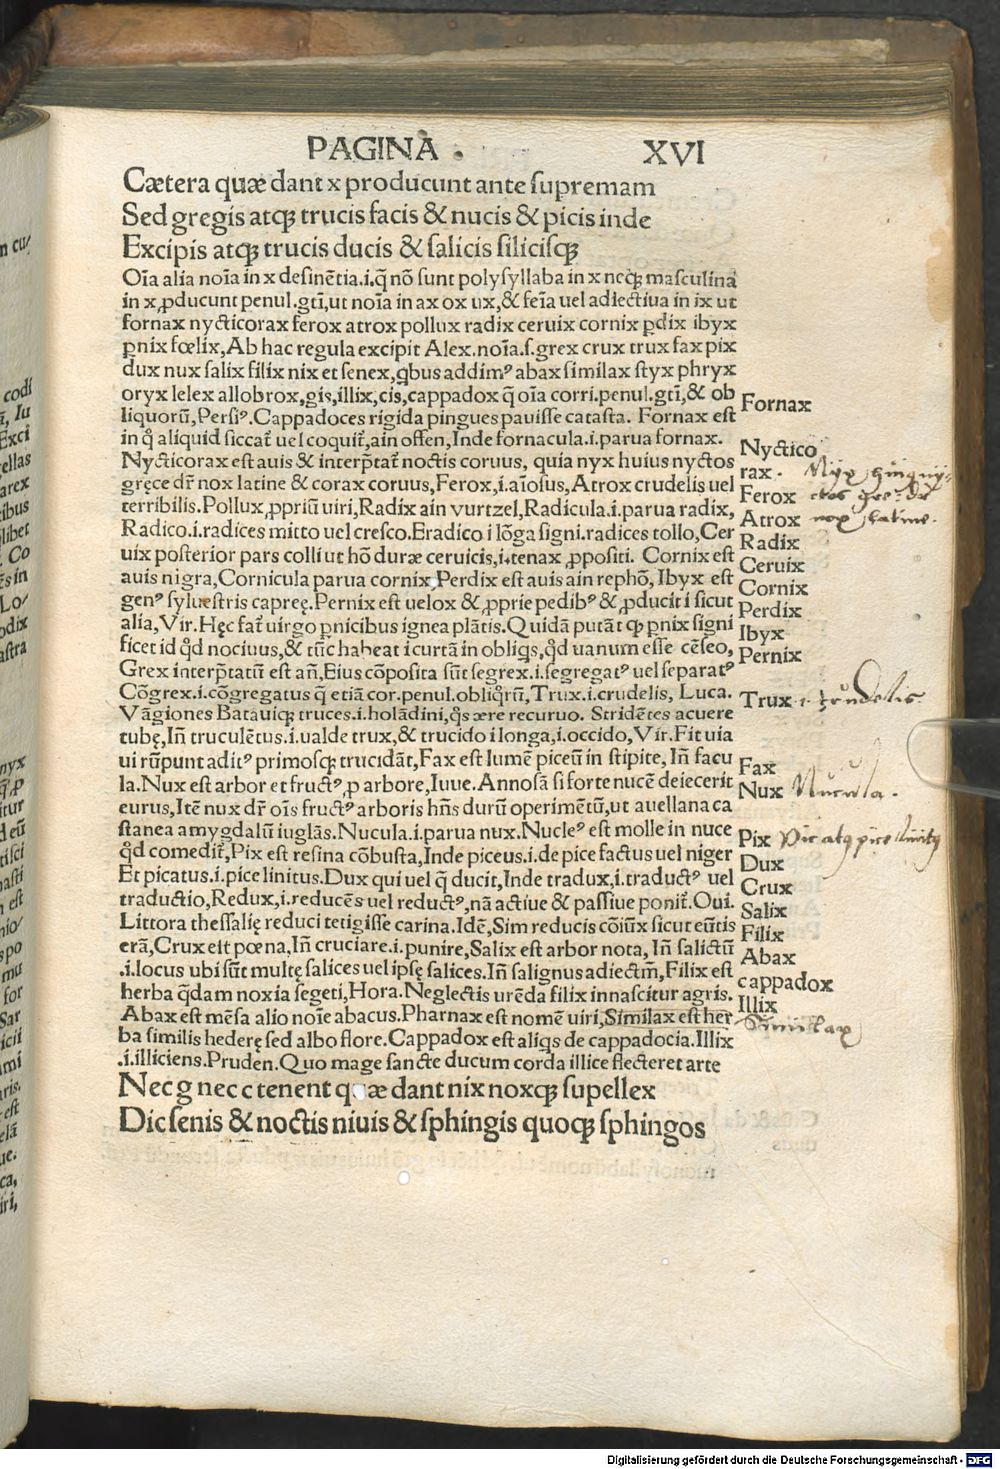 PAGINA . XVI
Cætera quæ dant x producunt ante supremam
Sed gregis atqꝫ trucis facis & nucis & picis inde
Excipis atqꝫ trucis ducis & salicis silicisqꝫ
Oīa alia noīa in x desinētia.i.q̄ nō sunt polysyllaba in x necqꝫ masculina
in x,ꝓducunt penul.gtī,ut noīa in ax ox ux,& feīa uel adiectiua in ix ut
fornax nycticorax ferox atrox pollux radix ceruix cornix ꝑdix ibyx
ꝑnix fœlix,Ab hac regula excipit Alex.noīa.s.grex crux trux fax pix
dux nux salix filix nix et senex,qbus addimꝰ abax similax styx phryx
oryx lelex allobrox,gis,illix,cis,cappadox q̄ oīa corri.penul.gtī,& ob
liquorū,Persiꝰ.Cappadoces rigida pingues pauisse catasta. Fornax est
in q̊ aliquid siccat᷑ uel coquit᷑,ain offen,Inde fornacula.i.parua fornax.
Nycticorax est auis & interp̄tat᷑ noctis coruus, quia nyx huius nyctos
gręce dr̄ nox latine & corax coruus,Ferox,i.aīosus,Atrox crudelis uel
terribilis.Pollux,ꝓpriū uiri,Radix ain vurtzel,Radicula.i.parua radix,
Radico.i.radices mitto uel cresco.Eradico i lōga signi.radices tollo,Cer
uix posterior pars colli ut hō duræ ceruicis,i.tenax ꝓpositi. Cornix est
auis nigra,Cornicula parua cornix,Perdix est auis ain rephō,Ibyx est
genꝰ syluestris capreę.Pernix est uelox & ꝓprie pedibꝰ & ꝓducit i sicut
alia,Vir.Hęc fat᷑ uirgo ꝑnicibus ignea plātis.Quidā putāt qꝫ ꝑnix signi
ficet id q̊d nociuus,& tūc habeat i curtā in obliq̊s,q̊d uanum esse cēseo,
Grex interp̄tatū est an̄,Eius cōposita sūt segrex.i.segregatꝰ uel separatꝰ
Cōgrex.i.cōgregatus q̄ etiā cor.penul.obliq̊rū,Trux.i.crudelis, Luca.
Vāgiones Batauiqꝫ truces.i.holādini,q̊s ære recuruo. Stridētes acuere
tubę,In̄ truculētus.i.ualde trux,& trucido i longa,i.occido,Vir.Fit uia
ui rūpunt aditꝰ primosqꝫ trucidāt,Fax est lumē piceū in stipite,In̄ facu
la.Nux est arbor et fructꝰ,ꝓ arbore,Iuue.Annosā si forte nucē deiecerit
eurus,Itē nux dr̄ oīs fructꝰ arboris hn̄s durū operimētū,ut auellana ca
stanea amygdalū iuglās.Nucula.i.parua nux.Nucleꝰ est molle in nuce
q̊d comedit᷑,Pix est resina cōbusta,Inde piceus.i.de pice factus uel niger
Et picatus.i.pice linitus.Dux qui uel q̄ ducit,Inde tradux,i.traductꝰ uel
traductio,Redux,i.reducēs uel reductꝰ,nā actiue & passiue ponit᷑.Oui.
Littora thessalię reduci tetigisse carina.Idē,Sim reducis cōiūx sicut eūtis
erā,Crux est pœna,In̄ cruciare.i.punire,Salix est arbor nota, In̄ salictū
.i.locus ubi sūt multę salices uel ipsę salices.In̄ salignus adiectm̄,Filix est
herba q̄dam noxia segeti,Hora.Neglectis urēda filix innascitur agris.
Abax est mēsa alio noīe abacus.Pharnax est nomē uiri,Similax est her
ba similis hederę sed albo flore.Cappadox est aliq̊s de cappadocia.Illix
.i.illiciens.Pruden.Quo mage sancte ducum corda illice flecteret arte
Nec g nec c tenent quæ dant nix noxqꝫ supellex
Dic senis & noctis niuis & sphingis quoqꝫ sphingos
Fornax
Nyctico
rax .
Ferox
Atrox nox latine.
Radix
Ceruix
Cornix
Perdix
Ibyx
Pernix
Trux .i. crudelis
Fax
Nux Nucula.
Pix
Dux
Crux
Salix
Filix
Abax
cappadox
Illix
Similax
n cu/
codi
ā, Iu
Exci
ellas
arex
cibus
libet
Co
ēs in
Lo/
odix
astra
nyx
itur
d eū
tisci
pasti
est
spo
mu
for
Sar
icii
imi
aris.
est
elā
ue.
ca,
iri,
Digitalisierung gefördert durch die Deutsche Forschungsgemeinschaft - DFG